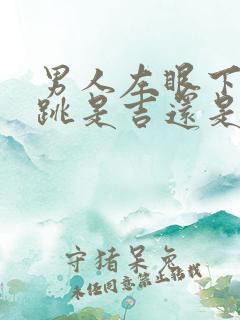 男人左眼下
跳是吉還是
守猪呆兔
未经同意禁止转载